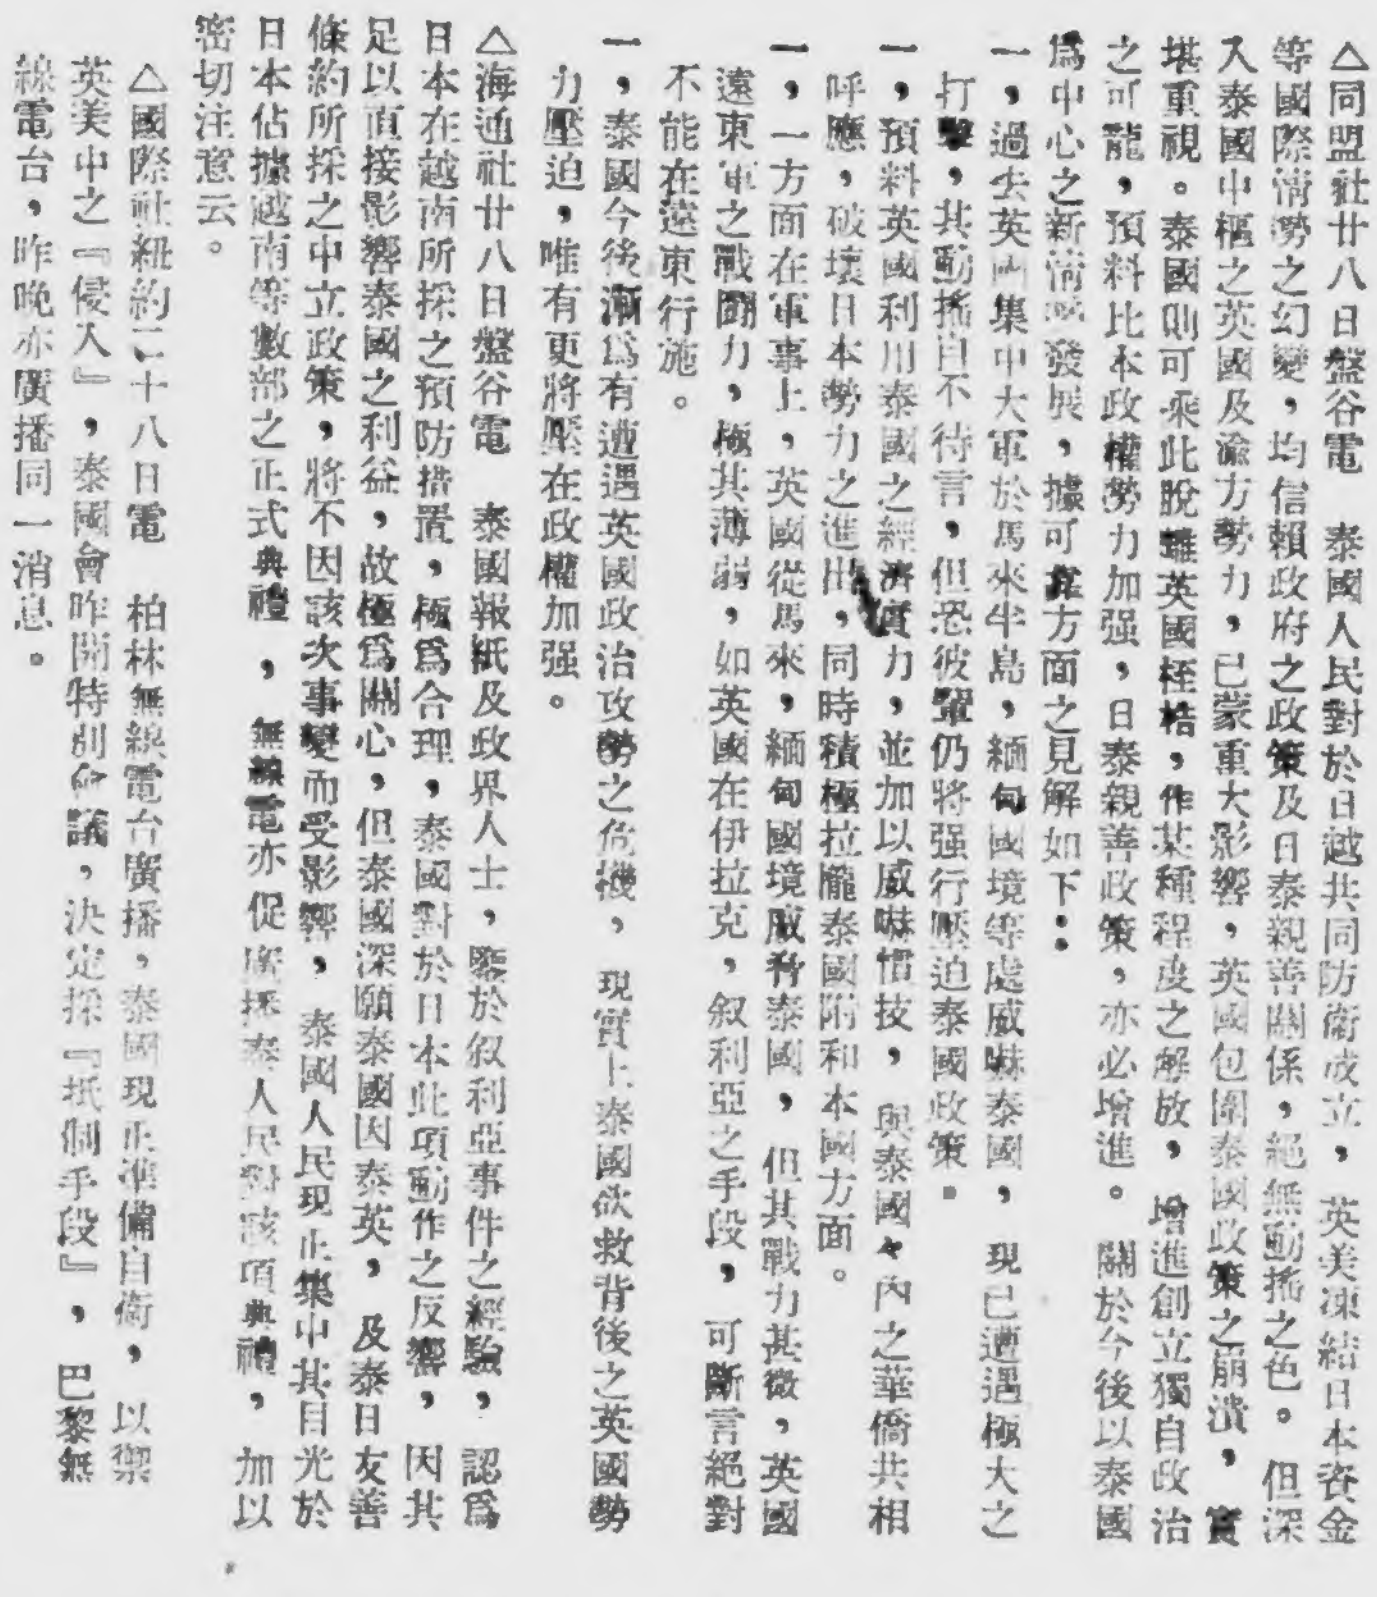 △同盟社廿八日盤谷電　泰國人民對於日越共同防衛成立，英美凍結日本資金
等國際情勢之幻變，均信賴政府之政策及日泰親善關係，絕無動搖之色。但深
入泰國中樞之英國及渝方勢力，已蒙重大影響，英國包圍泰國政策之崩潰，實
堪重視。泰國則可乘此脫離英國桎梏，作某種程度之解放，增進創立獨自政治
之可龍，預料比本政權勢力加强，日泰親善政策，亦必增進。關於今後以泰國
爲中心之新情勢發展，據可靠方面之見解如下：
一，過去英國集中大軍於馬來半島，緬甸國境等處威嚇泰國，現已遭遇極大之
打擊，其動搖自不待言，但恐彼輩仍將强行壓迫泰國政策。
一，預料英國利用泰國之經濟實力，並加以威嚇慣技，與泰國々內之華僑共相
呼應，破壞日本勢力之進出，同時積極拉隴泰國附和本國方面。
一，一方面在軍事上，英國從馬來，緬甸國境威脅泰國，但其戰力甚微，英國
遠東軍之戰鬪力，極其薄弱，如英國在伊拉克，叙利亞之手段，可斷言絕對
不能在遠東行施。
一，泰國今後漸爲有遭遇英國政治攻勢之危機，現實上泰國欲救背後之英國勢
力壓迫，唯有更將壓在政權加强。
△海通社廿八日盤谷電　泰國報紙及政界人士，鑒於叙利亞事件之經驗，認爲
日本在越南所採之預防措置，極爲合理，泰國對於日本此項動作之反響，因其
足以直接影響泰國之利益，故極爲關心，但泰國深願泰國因泰英，及泰日友善
條約所採之中立政策，將不因該次事變而受影響，泰國人民現正集中其目光於
日本佔據越南等數部之正式典禮，無線電亦促廣播泰人民對該項典禮，加以
密切注意云。
△國際社紐約二十八日電　柏林無線電台廣播，泰國現正準備自衛，以禦
英美中之『侵入』，泰國會昨開特別會議，決定採『抵制手段』，巴黎無
線電台，昨晚亦廣播同一消息。